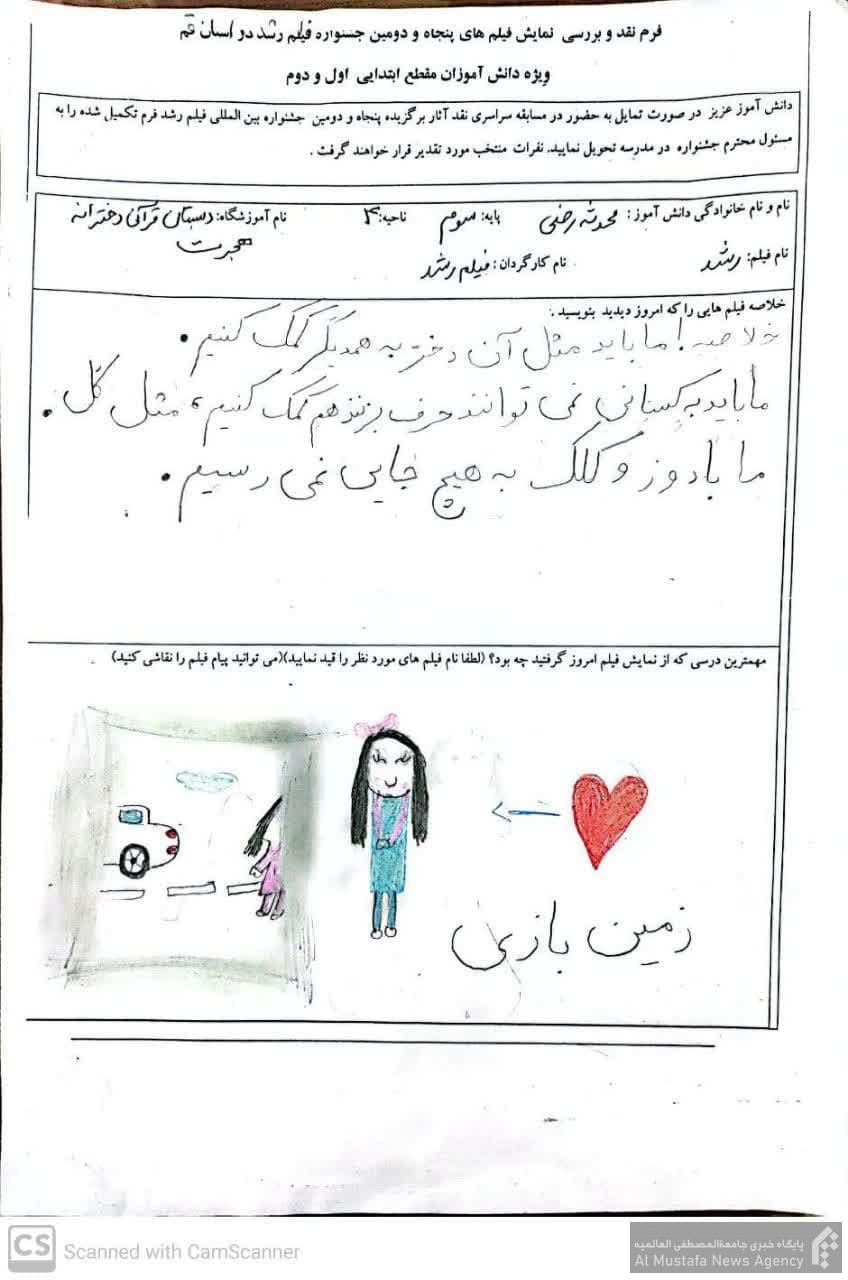 فرم نقد و بررسی نمایش فیلم های پنجاه و دومین جسنواره فیلم رشد در استان قم
ویژه دانش آموزان مقطع ابتدایی اول و دوم
دانش آموز عزیز در صورت تمایل به حضور در مسابقه سراسری نقد آثار برگزیده پنجاه و دومین جشنواره بین المللی فیلم رشد فرم تکمیل شده را به
مسئول محترم جشنواره در مدرسه تحویل نمایید. نفرات منتخب مورد تقدیر قرار خواهند گرفت .
نام و نام خانوادگی دانش آموز: محدثه رضی پایه: سوم ناحیه: ۴ نام آموزشگاه: دبستان قرآنی دخترانه
هجرت
نام فیلم: رشد نام کارگردان: فیلم رشد
خلاصه فیلم هایی را که امروز دیدید بنویسید .
خلاصه! ما باید مثل آن دختر به همدیگر کمک کنیم.
ما باید به کسانی نمی توانند حرف بزنند هم کمک کنیم، مثل گل.
ما با دوز و کلک به هیچ جایی نمی رسیم.
مهمترین درسی که از نمایش فیلم امروز گرفتید چه بود؟ (لطفا نام فیلم های مورد نظر را قید نمایید)(می توانید پیام فیلم را نقاشی کنید) .
زمین بازی
CS Scanned with CamScanner
پایگاه خبری جامعةالمصطفی العالمیه
Al Mustafa News Agency